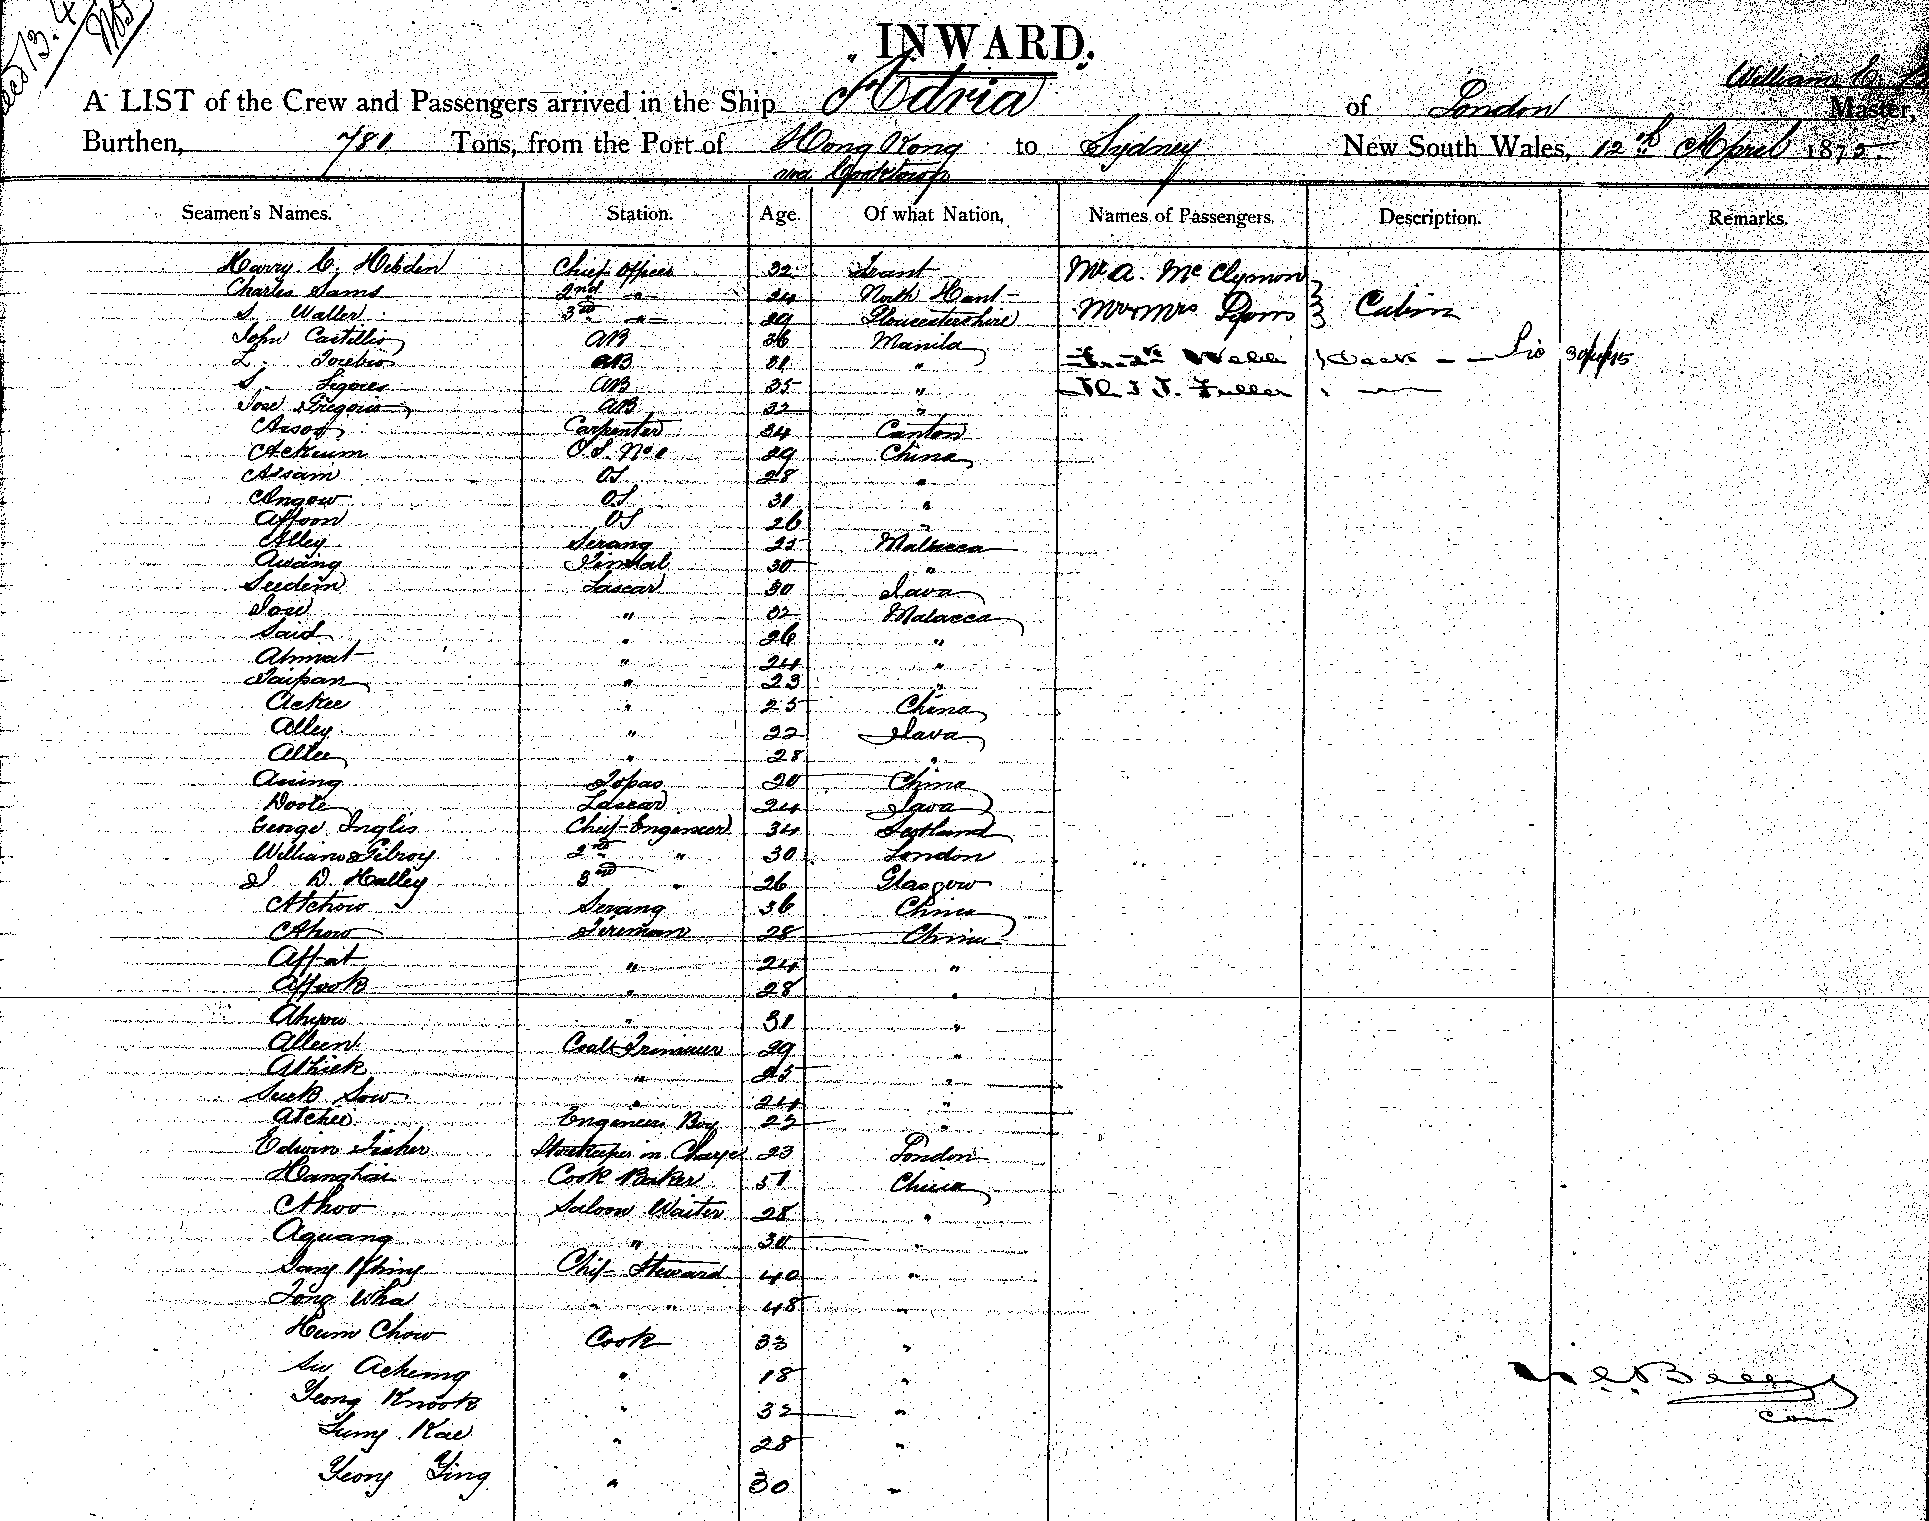 INWARD.
A LIST of the Crew and Passengers arrived in the Ship Adria of London William C. Master,
Burthen, 781 Tons, from the Port of Hong Kong to Sydney New South Wales, 12th April 1875.
via Cooktown
Seamen's Names. Station. Age. Of what Nation, Names of Passengers. Description. Remarks.
Harry C. Hebden Chief Officer 32 Mr A. McClymon
Charles Sams 2nd " 24 North Hant
S. Waller 3rd " 29 Gloucestershire Mr & Mrs Lyons Cabin
John Castillio AB 36 Manila
L. Torebio AB 31 " Webb Deck
S. AB 35 " Fuller "
Jose Gregorio AB 32 "
Assog Carpenter 34 Canton
Ackum O.S. No 1 29 China
Assam OS 28 "
Angow OS 31 "
Affoon OS 26 "
Alley Serang 25 Malacca
Awang Tindal 30 "
Seedem Lascar 30 Java
Jose " 32 Malacca
Said " 26 "
Ahmat " 24 "
Taipan " 23 "
Ackee " 25 China
Alley " 22 Java
Allee " 28 "
Aning Topas 20 China
Doole Lascar 24 Java
George Inglis Chief Engeneer 34 Scotland
William Gilroy 2nd " 30 London
J D Halley 3rd " 26 Glasgow
Atchow Serang 36 China
Ahow Fireman 28 China
Affat " 24 "
Affook " 28 "
Ahyow " 31 "
Alleen Coal Trimmer 29 "
Athick " 25 "
Suck Sow " 24 "
Atchee Engeneers Boy 22 "
Edwin Fisher Storekeeper in Charge 23 London
Hanghai Cook Baker 51 China
Ahoo Saloon Waiter 28 "
Aquang " 30 "
Chief Steward 40 "
Tong Wha " " 48 "
Hum Chow Cook 33 "
Achemg " 18 "
Yeong Knook " 32 "
Kae " 28 "
Yeong Ying " 30 "